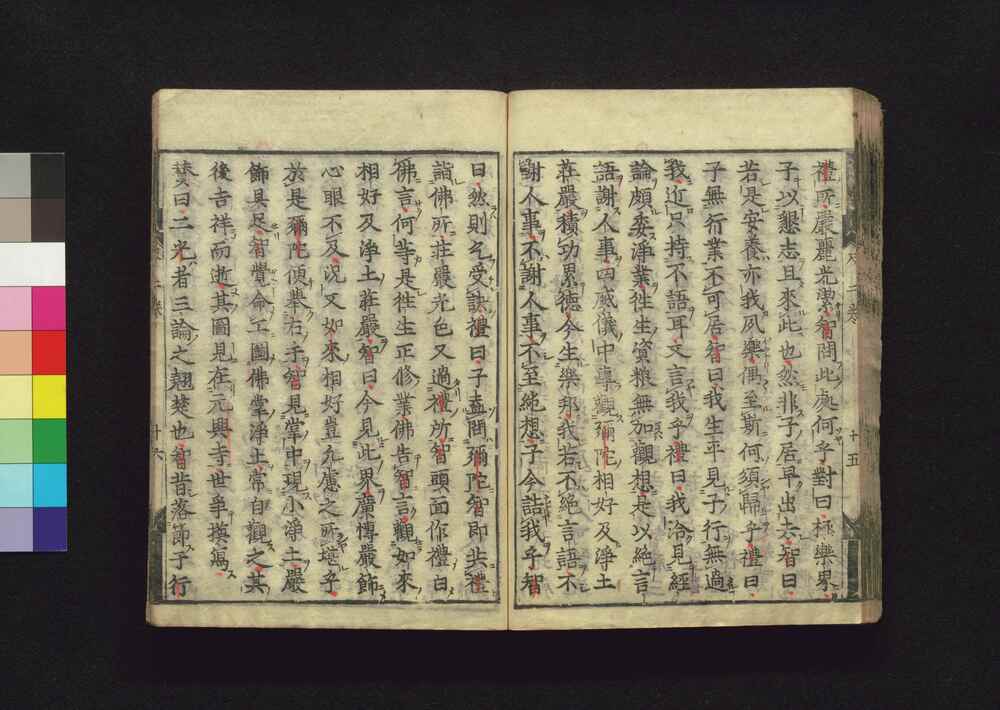 禮所嚴麗光潔智問此處何乎對曰極樂界
子以懇志且來此也然非子居早出去智曰
若是安養亦我夙樂偶至斯何須歸乎禮曰
子無行業不可居智曰我生平見子行無過
我近只持不語耳又言我乎禮曰我洽見經
論頗委淨業往生資粮無加觀想是以絶言
語謝人事四威儀中專觀彌陀相好及淨土
莊嚴積功累德今生樂那我若不絶言語不
謝人事不謝人事不至純想子今詰我乎智
曰然則乞受訣禮曰子盍問彌陀智即共禮
詣佛所莊嚴光色又過禮所智頭面作禮白
佛言何等是往生正修業佛告智言觀如來
相好及淨土莊嚴智曰今見此界廣博嚴飾
心眼不及況又如來相好豈凡慮之所堪乎
於是彌陀便擧右手智見掌中現小淨土嚴
飾具足智覺命工圖佛掌淨土常自觀之其
後吉祥而逝其圖見在元興寺世爭摸寫
賛曰二光者三論之翹楚也智昔落節于行
十五
十六